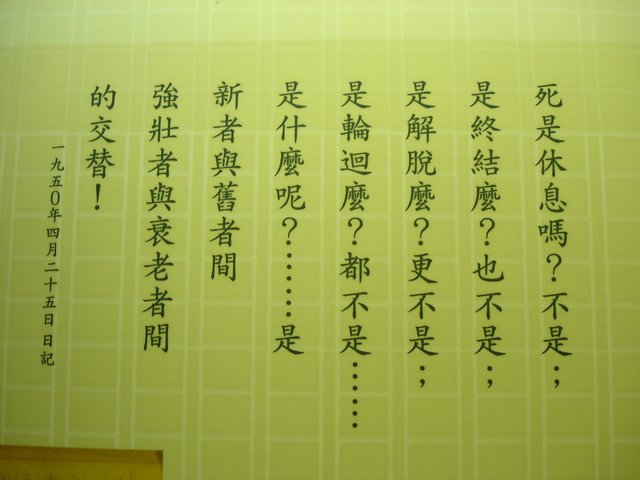 死是休息嗎？不是；
是終結麼？也不是；
是解脫麼？更不是；
是輪迴麼？都不是……
是什麼呢？……是
新者與舊者間
強壯者與衰老者間
的交替！
一九五0年四月二十五日日記